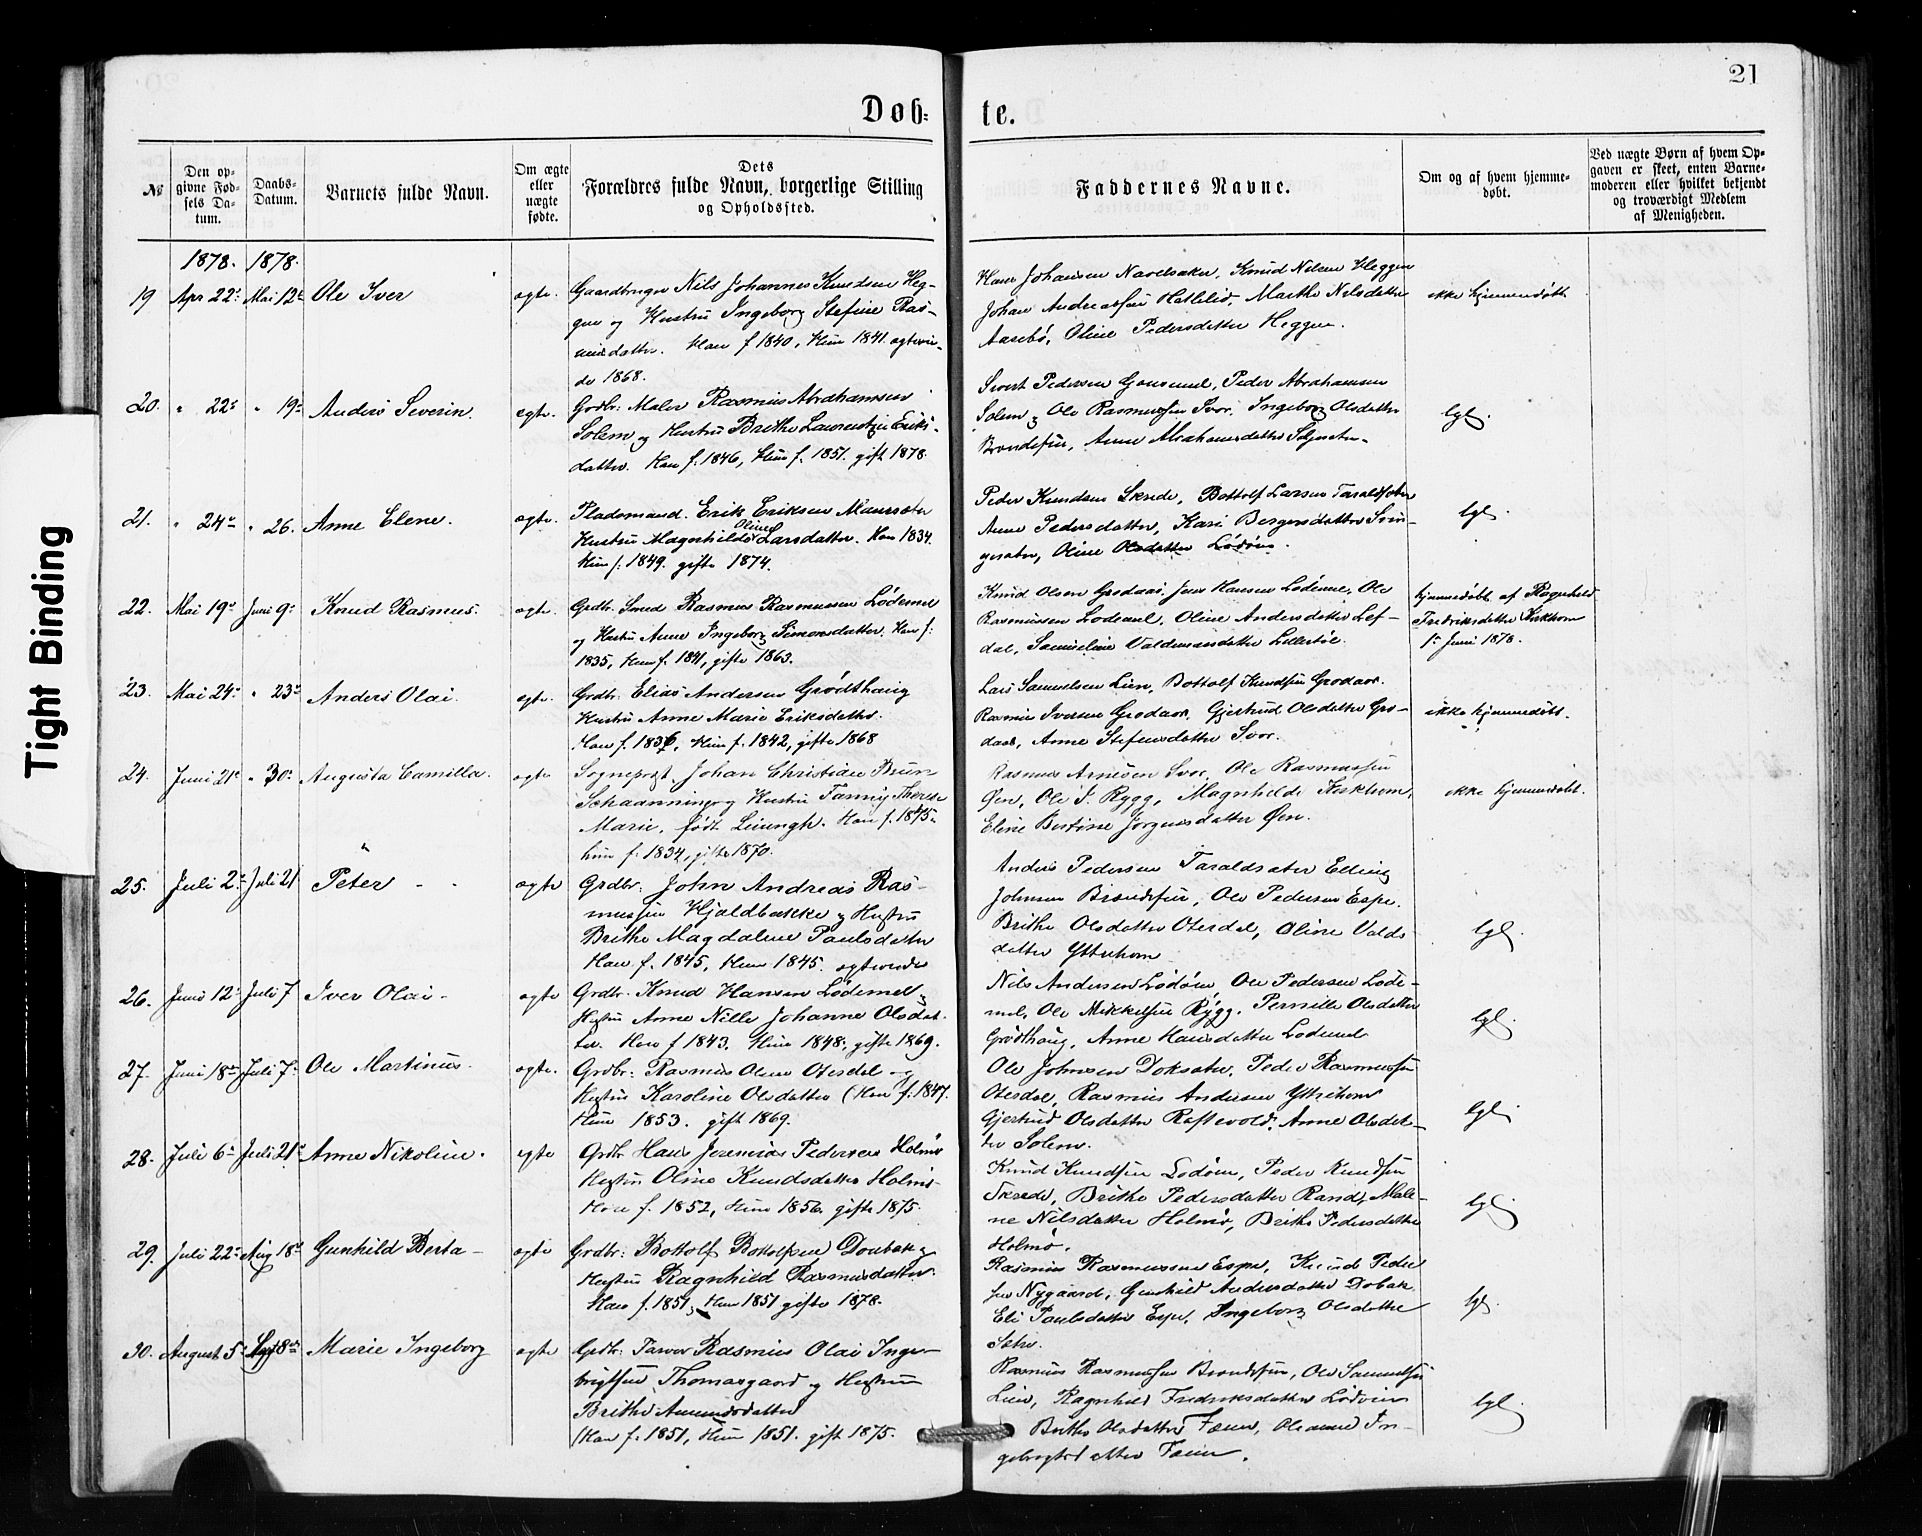 21
Døb-
te.
Tight Binding
№
Den op-
givne Fød-
sels Da-
tum.
Daabs-
Datum.
Barnets fulde Navn.
Om ægte
eller
uægte
fødte.
Dets
Forældres fulde Navn, borgerlige Stilling
og Opholdssted.
Faddernes Navne.
Om og af hvem hjemme-
døbt.
Ved uægte Børn af hvem Op-
gaven er skeet, enten Barne-
moderen eller hvilket bekjendt
og troværdigt Medlem
af Menigheden.
1878. 1878.
19 Apr 22 Mai 12 Ole Iver
ægte.
Gaardbruger Nils Johannes Knudsen Heg-
gen og Hustru Ingeborg Stefine Ras-
musdatter. Han f 1840, Hun 1841 ægtevi-
de 1868.
Johansen Navelsaker, Knud Nilsen Heggen
Johan Andreassen Hatlelid, Marthe Nilsdatter
Aasebø, Oline Pedersdatter Heggen.
ikke hjemmedøbt
20. " 22 " 19 Anders Severin.
ægte.
Grdbr: Maler Rasmus Abrahamsen
Solem og Hustru Brithe Laurentze Eriks-
datter. Han f. 1846, Hun f. 1851. gift 1878.
Sivert Pedersen, Peder Abrahamsen
Solem, Ole Rasmussen Svor, Ingeborg Olsdatter
Anne Abrahamsdatter
lgl.
21. " 24 " 26. Anne Elene.
ægte.
Pladsmand. Erik Eriksen Maurseter
Hustru Magnhilde Oline Larsdatter. Han 1834.
Hun f: 1849. gifte 1874.
Peder Knudsen Skrede, Bottolf Larsen Taraldseter
Anne Pedersdatter, Kari Bergersdatter Svin-
geseter, Oline Olsdatter Lødøen.
lgl.
22. Mai 19 Juni 9 Knud Rasmus.
ægte.
Grdbr. Smed Rasmus Rasmussen Lødemel
og Hustru Anne Ingeborg Simonsdatter. Han f:
1835, Hun f. 1841, gifte 1863.
Knud Olsen Grodaas, Jens Hansen Lødemel, Ole
Rasmussen Lødemel, Oline Andersdatter Lef-
dal, Samueline Valdemarsdatter
hjemmedøbt af Ragnhild
Fredriksdatter Kirkhorn
1 Juni 1878.
23. Mai 24 " 23 Anders Olai.
ægte.
Grdbr. Elias Andersen Grødthaug
Hustru Anne Marie Eriksdatter.
Han f. 1836, Hun f. 1842, gifte 1868
Lars Samuelsen Lien, Bottolf Knudsen Grodaas.
Rasmus Iversen Grodaas, Gjertrud Olsdatter Gro-
daas, Anne Stefensdatter Svor.
ikke hjemmedøbt.
24. Juni 21 " 30 Augusta Camilla.
ægte
Sogneprest Johan Christian Brun
Schaanning og Hustru Fanny Therese
Marie, født Han f. 1845
hun f. 1834, gifte 1870.
Rasmus Arnesen Svor, Ole Rasmussen
Øen, Ole J. Rygg, Magnhilde Kirkhorn,
Eline Bertine Jørgensdatter Øen.
ikke hjemmedøbt.
25. Juli 2 Juli 21 Peter - -
ægte
Grdbr: John Andreas Ras-
mussen Hjaldbakke og Hustru
Brithe Magdalene Paulsdatter
Han f. 1845, Hun 1845. ægteviede
Anders Pedersen Taraldseter Elling
Johnsen Brandsfur, Ole Pedersen Espe.
Brithe Olsdatter Oterdal, Oline Valds-
datter Ytrehorn
lgl.
26. Juni 12 Juli 7 Iver Olai -
ægte
Grdbr. Knud Hansen Lødemel og
Hustru Anne Nille Johanne Olsdat-
ter. Han f 1843. Hun 1848, gifte 1869.
Nils Andersen Lødøen, Ole Pedersen Løde-
mel, Ole Mikkelsen Rygg. Pernille Olsdatter
Grødthaug, Anne Hansdatter Lødemel
lgl.
27. Juni 18 Juli 7 Ole Martinus.
ægte.
Grdbr: Rasmus Olsen Oterdal og
Hustru Karoline Olsdatter (Han f: 1847.
Hun 1853. gift 1869.
Ole Johnsen Dokseter, Peder Rasmussen
Oterdal, Rasmus Andersen Ytrehorn
Gjertrud Olsdatter Raftevold, Anne Olsdat-
ter Solem.
lgl.
28. Juli 6 Juli 21 Anne Nikoline.
ægte
Grdbr Hans Jeremias Pedersen Holmø
Hustru Oline Knudsdatter Holmø.
Han f. 1852, Hun 1856. gifte 1875.
Knud Knudsen Lødøen, Peder Knudsen
Skrede, Brithe Pedersdatter Rand, Male-
ne Nilsdatter Holmø, Brithe Pedersdatter
Holmø.
lgl.
29. Juli 22 Aug 18 Gunhild Berta -
ægte
Grdbr: Bottolf Bottolfsen Dombak og
Hustru Ragnhild Rasmusdatter.
Han f. 1851, Hun 1851 gifte 1878.
Rasmus Rasmussen Espe, Knud Peder
sen Nygaard, Gunhild Andersdatter Dobak
Eli Paulsdatter Espe, Ingeborg Olsdatter
lgl.
30. August 5 Sept 8 Marie Ingeborg
ægte
Grdbr: Farver Rasmus Olai Inge-
brigtsen Thomasgaard og Hustru
Brithe Amundsdatter
(Han f. 1851, Hun 1851. gift 1875.
Rasmus Rasmussen Brandsfur, Ole Samuelsen
Lien, Ragnhild Fredriksdatter Lødøen
Brithe Olsdatter Fæen, Oleanne In-
gebrigtsdatter Fæen.
lgl.